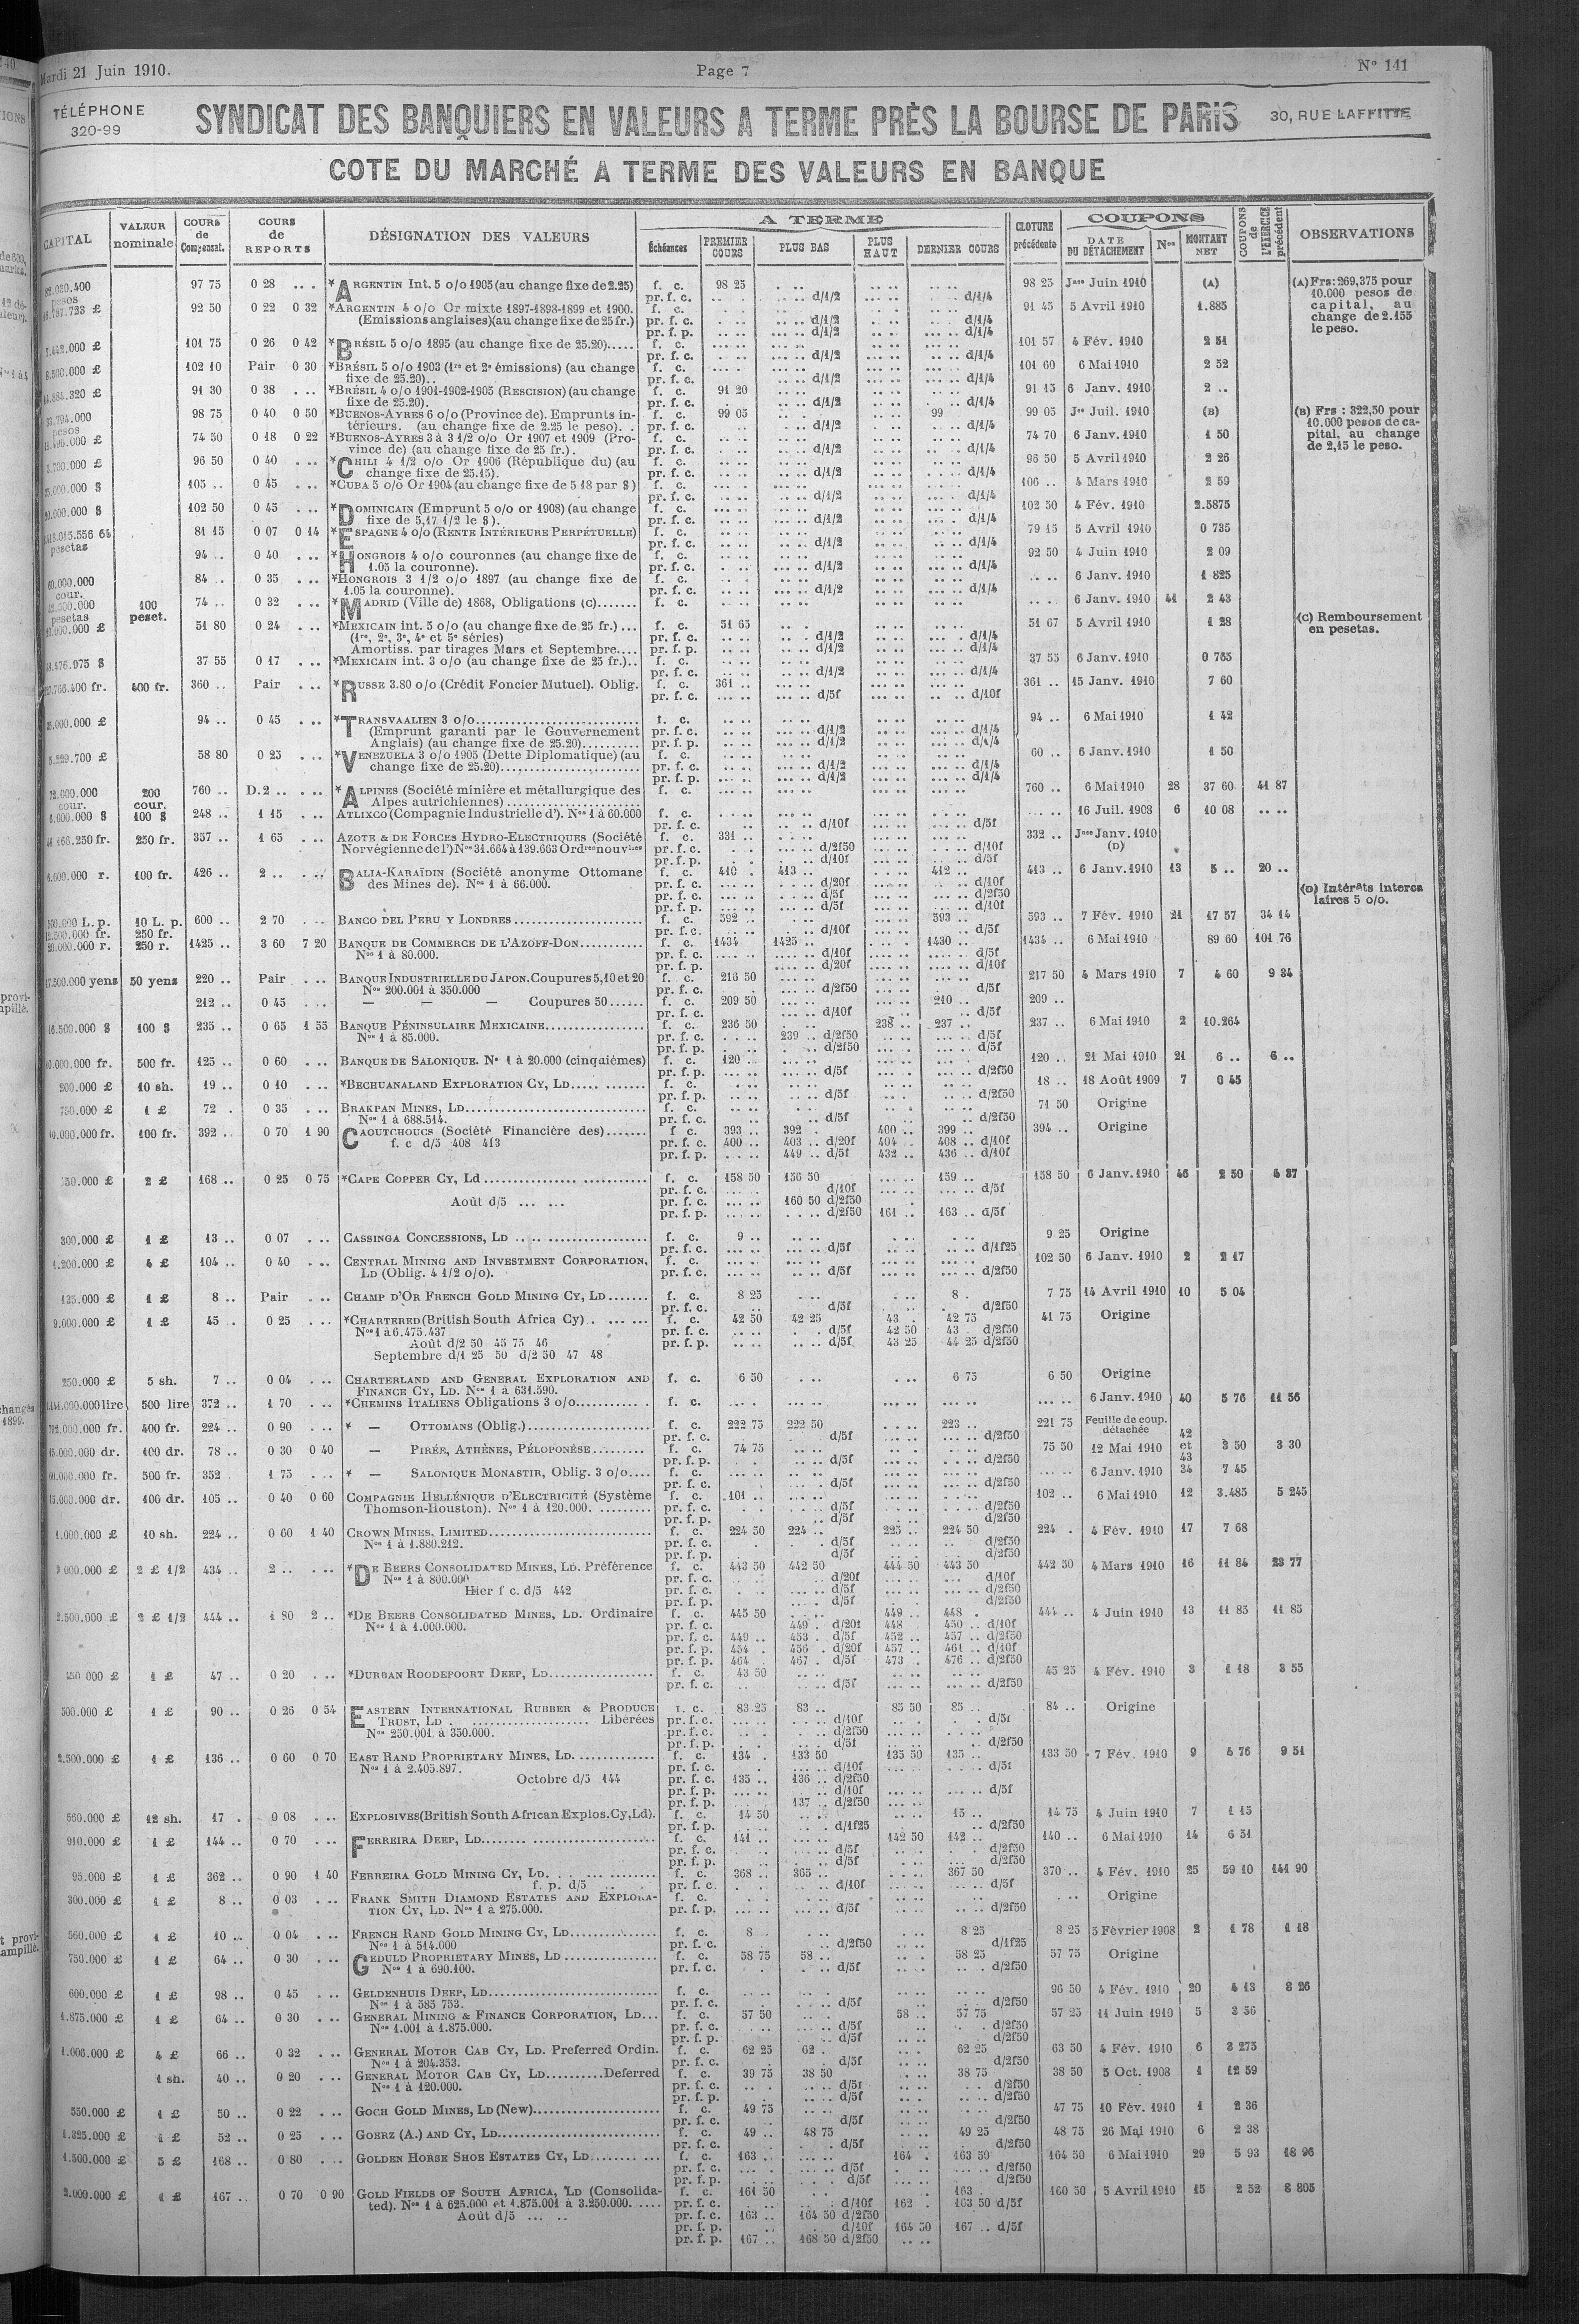 Mardi 21 Juin 1910.
Page 7
N° 141
TÉLÉPHONE
320-99
SYNDICAT DES BANQUIERS EN VALEURS A TERME PRÈS LA BOURSE DE PARIS
30, RUE LAFFITTE
COTE DU MARCHÉ A TERME DES VALEURS EN BANQUE
CAPITAL
VALEUR nominale
COURS de Compensat.
COURS de REPORTS
DÉSIGNATION DES VALEURS
A TERME
Échéances
PREMIER COURS
PLUS BAS
PLUS HAUT
DERNIER COURS
CLOTURE précédente
COUPONS
DATE DU DÉTACHEMENT
Nos
MONTANT NET
COUPONS de L'EXERCICE précédent
OBSERVATIONS
97 75 0 28 *ARGENTIN Int. 5 o/o 1905 (au change fixe de 2.25) f. c. 98 25 98 25 Jnce Juin 1910 (A)
pr. f. c. d/1/2 d/1/4
92 50 0 22 0 32 *ARGENTIN 4 o/o Or mixte 1897-1898-1899 et 1900. f. c. 91 45 5 Avril 1910 1.885
(Emissions anglaises) (au change fixe de 25 fr.) pr. f. c. d/1/2 d/1/4
pr. f. p. d/1/2 d/1/4
101 75 0 26 0 42 *BRÉSIL 5 o/o 1895 (au change fixe de 25.20)..... f. c. 101 57 4 Fév. 1910 2 51
pr. f. c. d/1/2 d/1/4
8.500.000 £ 102 10 Pair 0 30 *BRÉSIL 5 o/o 1903 (1re et 2e émissions) (au change f. c. 101 60 6 Mai 1910 2 52
fixe de 25.20).. pr. f. c. d/1/2 d/1/4
91 30 0 38 *BRÉSIL 4 o/o 1901-1902-1905 (RESCISION) (au change f. c. 91 20 91 15 6 Janv. 1910 2 ..
fixe de 25.20). pr. f. c. d/1/2 d/1/4
98 75 0 40 0 50 *BUENOS-AYRES 6 o/o (Province de). Emprunts in- f. c. 99 05 99 99 05 Jce Juil. 1910 (B)
térieurs. (au change fixe de 2.25 le peso). pr. f. c. d/1/2 d/1/4
74 50 0 18 0 22 *BUENOS-AYRES 3 à 3 1/2 o/o Or 1907 et 1909 (Pro- f. c. 74 70 6 Janv. 1910 1 50
vince de) (au change fixe de 25 fr.). pr. f. c. d/1/2 d/1/4
96 50 0 40 *CHILI 4 1/2 o/o Or 1906 (République du) (au f. c. 96 50 5 Avril 1910 2 26
change fixe de 25.15). pr. f. c. d/1/2 d/1/4
105 .. 0 45 *CUBA 5 o/o Or 1904 (au change fixe de 5 18 par $) f. c. 106 .. 4 Mars 1910 2 59
pr. f. c. d/1/2 d/1/4
102 50 0 45 *DOMINICAIN (Emprunt 5 o/o or 1908) (au change f. c. 102 50 4 Fév. 1910 2.5875
fixe de 5,17 1/2 le $). pr. f. c. d/1/2 d/1/4
pesetas 81 15 0 07 0 14 *ESPAGNE 4 o/o (RENTE INTÉRIEURE PERPÉTUELLE) f. c. 79 15 5 Avril 1910 0 735
pr. f. c. d/1/2 d/1/4
94 .. 0 40 *HONGROIS 4 o/o couronnes (au change fixe de f. c. 92 50 4 Juin 1910 2 09
1.05 la couronne). pr. f. c. d/1/2 d/1/4
cour. 84 .. 0 35 *HONGROIS 3 1/2 o/o 1897 (au change fixe de f. c. 6 Janv. 1910 1 825
1.05 la couronne). pr. f. c. d/1/2 d/1/4
pesetas 100 peset. 74 .. 0 32 *MADRID (Ville de) 1868, Obligations (C)....... f. c. 6 Janv. 1910 41 2 43
51 80 0 24 *MEXICAIN int. 5 o/o (au change fixe de 25 fr.)... f. c. 51 65 51 67 5 Avril 1910 1 28
(1re, 2e, 3e, 4e et 5e séries) pr. f. c. d/1/2 d/1/4
Amortiss. par tirages Mars et Septembre.... pr. f. p. d/1/2 d/1/4
37 55 0 17 *MEXICAIN int. 3 o/o (au change fixe de 25 fr.).. f. c. 37 55 6 Janv. 1910 0 765
pr. f. c. d/1/2 d/1/4
400 fr. 360 .. Pair *RUSSE 3.80 o/o (Crédit Foncier Mutuel). Oblig. f. c. 361 .. 361 .. 15 Janv. 1910 7 60
pr. f. c. d/5f d/10f
94 .. 0 45 *TRANSVAALIEN 3 o/o f. c. 94 .. 6 Mai 1910 1 42
(Emprunt garanti par le Gouvernement pr. f. c. d/1/2 d/1/4
Anglais) (au change fixe de 25.20) pr. f. p. d/1/2 d/1/4
58 80 0 25 *VENEZUELA 3 o/o 1905 (Dette Diplomatique) (au f. c. 60 .. 6 Janv. 1910 1 50
change fixe de 25.20) pr. f. c. d/1/2 d/1/4
pr. f. p. d/1/2 d/1/4
72.000.000 cour. 200 cour. 760 .. D.2 .. *ALPINES (Société minière et métallurgique des f. c. 760 .. 6 Mai 1910 28 37 60 41 87
Alpes autrichiennes)
6.000.000 $ 100 $ 248 .. 1 15 ATLIXCO (Compagnie Industrielle d'). Nos 1 à 60.000 f. c. 16 Juil. 1908 6 10 08
pr. f. c. d/10f d/5f
250 fr. 357 .. 1 65 AZOTE & DE FORCES HYDRO-ELECTRIQUES (Société f. c. 331 .. 332 .. Jnce Janv. 1910 (D)
Norvégienne de l') Nos 31.664 à 139.663 Ordres nouvlles pr. f. c. d/2f50 d/10f
pr. f. p. d/10f d/5f
100 fr. 426 .. 2 .. BALIA-KARAÏDIN (Société anonyme Ottomane f. c. 410 413 .. 412 .. 413 .. 6 Janv. 1910 13 5 .. 20 ..
des Mines de). Nos 1 à 66.000. pr. f. c. d/20f d/10f
pr. f. c. d/5f d/2f50
pr. f. p. d/5f d/10f
10 L. p. 250 fr. 600 .. 2 70 BANCO DEL PERU Y LONDRES f. c. 592 .. 593 .. 593 .. 7 Fév. 1910 21 17 57 34 14
pr. f. c. d/10f d/5f
250 r. 1425 .. 3 60 7 20 BANQUE DE COMMERCE DE L'AZOFF-DON f. c. 1434 1425 .. 1430 .. 1434 .. 6 Mai 1910 89 60 101 76
Nos 1 à 80.000. pr. f. c. d/10f d/5f
pr. f. p. d/20f d/10f
17.500.000 yens 50 yens 220 .. Pair BANQUE INDUSTRIELLE DU JAPON. Coupures 5, 10 et 20 f. c. 216 50 217 50 4 Mars 1910 7 4 60 9 34
Nos 200.001 à 350.000 pr. f. c. d/2f50 d/5f
212 .. 0 45 — — — Coupures 50...... f. c. 209 50 210 .. 209 ..
pr. f. c. d/10f d/5f
16.500.000 $ 100 $ 235 .. 0 65 1 55 BANQUE PÉNINSULAIRE MEXICAINE f. c. 236 50 238 .. 237 .. 237 .. 6 Mai 1910 2 10.264
Nos 1 à 85.000. pr. f. c. 239 .. d/2f50 d/5f
pr. f. p. d/2f50 d/5f
10.000.000 fr. 500 fr. 125 .. 0 60 BANQUE DE SALONIQUE. Nos 1 à 20.000 (cinquièmes) f. c. 120 .. 120 .. 21 Mai 1910 21 6 .. 6 ..
pr. f. p. d/5f d/2f50
200.000 £ 10 sh. 19 .. 0 10 *BECHUANALAND EXPLORATION CY, LD f. c. 18 .. 18 Août 1909 7 0 45
pr. f. p. d/5f d/2f50
750.000 £ 1 £ 72 . 0 35 BRAKPAN MINES, LD f. c. 71 50 Origine
Nos 1 à 688.514. pr. f. c. d/5f d/2f50
10.000.000 fr. 100 fr. 392 .. 0 70 1 90 CAOUTCHOUCS (Société Financière des) f. c. 393 .. 392 . 400 .. 399 .. 394 .. Origine
f. c d/5 408 413 pr. f. c. 400 .. 403 .. d/20f 404 .. 408 .. d/10f
pr. f. p. 449 .. d/5f 432 .. 436 .. d/10f
2 £ 168 .. 0 25 0 75 *CAPE COPPER CY, LD f. c. 158 50 156 50 159 .. 158 50 6 Janv. 1910 46 2 50 4 37
pr. f. c. d/10f d/5f
Août d/5 ... ... pr. f. c. 160 50 d/2f50
pr. f. p. d/2f50 161 .. 163 .. d/5f
300.000 £ 1 £ 13 .. 0 07 CASSINGA CONCESSIONS, LD f. c. 9 .. 9 25 Origine
pr. f. c. d/5f d/1f25
1.200.000 £ 4 £ 104 .. 0 40 CENTRAL MINING AND INVESTMENT CORPORATION, f. c. 102 50 6 Janv. 1910 2 2 17
LD (Oblig. 4 1/2 o/o). pr. f. c. d/5f d/2f50
135.000 £ 1 £ 8 .. Pair CHAMP D'OR FRENCH GOLD MINING CY, LD f. c. 8 25 8 . 7 75 14 Avril 1910 10 5 04
pr. f. c. d/5f d/2f50
9.000.000 £ 1 £ 45 . 0 25 *CHARTERED (British South Africa Cy) f. c. 42 50 42 25 43 . 42 75 41 75 Origine
Nos 1 à 6.475.437 pr. f. c. d/5f 42 50 43 . d/2f50
Août d/2 50 45 75 46 pr. f. p. d/5f 43 25 44 25 d/2f50
Septembre d/1 25 50 d/2 50 47 48
250.000 £ 5 sh. 7 .. 0 04 CHARTERLAND AND GENERAL EXPLORATION AND f. c. 6 50 6 75 6 50 Origine
FINANCE CY, LD. Nos 1 à 631.590.
500 lire 372 .. 1 70 *CHEMINS ITALIENS Obligations 3 o/o f. c. 6 Janv. 1910 40 5 76 11 56
400 fr. 224 .. 0 90 * — OTTOMANS (Oblig.) f. c. 222 75 222 50 223 .. 221 75 Feuille de coup. détachée
pr. f. c. d/5f d/2f50
100 dr. 78 .. 0 30 0 40 — PIRÉE, ATHÈNES, PÉLOPONÈSE f. c. 74 75 75 50 12 Mai 1910 42 et 43 3 50 3 30
pr. f. p. d/5f d/2f50
500 fr. 352 1 75 * — SALONIQUE MONASTIR, Oblig. 3 o/o f. c. 6 Janv. 1910 34 7 45
pr. f. c. d/5f d/2f50
15.000.000 dr. 100 dr. 105 .. 0 40 0 60 COMPAGNIE HELLÉNIQUE D'ELECTRICITÉ (Système f. c. 101 .. 102 .. 6 Mai 1910 12 3.485 5 245
Thomson-Houston). Nos 1 à 120.000. pr. f. c. d/5f d/2f50
pr. f. p. d/5f d/2f50
1.000.000 £ 10 sh. 224 .. 0 60 1 40 CROWN MINES, LIMITED f. c. 224 50 224 .. 225 .. 224 50 224 . 4 Fév. 1910 17 7 68
Nos 1 à 1.880.212. pr. f. c. d/5f d/2f50
pr. f. p. d/5f d/2f50
2 £ 1/2 434 .. 2 .. *DE BEERS CONSOLIDATED MINES, LD. Préférence f. c. 443 50 442 50 444 50 443 50 442 50 4 Mars 1910 16 11 84 23 77
Nos 1 à 800.000 pr. f. c. d/20f d/10f
Hier f c. d/5 442 pr. f. c. d/5f d/2f50
pr. f. p. d/5f d/2f50
2.500.000 £ 2 £ 1/2 444 .. 1 80 2 .. *DE BEERS CONSOLIDATED MINES, LD. Ordinaire f. c. 445 50 449 .. 448 . 444 .. 4 Juin 1910 13 11 85 11 85
Nos 1 à 1.000.000. pr. f. c. 449 . d/20f 448 450 .. d/10f
pr. f. c. 449 .. 453 . d/5f 452 .. 457 .. d/2f50
pr. f. p. 454 . 456 . d/20f 457 .. 461 .. d/10f
pr. f. p. 464 467 . d/5f 473 . 476 .. d/2f50
1 £ 47 .. 0 20 *DURBAN ROODEPOORT DEEP, LD f. c. 43 50 45 25 4 Fév. 1910 3 1 18 3 55
pr. f. c. d/5f d/2f50
500.000 £ 1 £ 90 .. 0 26 0 54 EASTERN INTERNATIONAL RUBBER & PRODUCE f. c. 83 25 83 .. 85 50 85 84 .. Origine
TRUST, LD Libérées pr. f. c. d/10f d/5f
Nos 250.001 à 350.000. pr. f. c. d/2f50
pr. f. p. d/5f d/2f50
2.500.000 £ 1 £ 136 .. 0 60 0 70 EAST RAND PROPRIETARY MINES, LD f. c. 134 . 133 50 135 50 135 .. 133 50 7 Fév. 1910 9 5 76 9 51
Nos 1 à 2.405.897. pr. f. c. d/10f d/5f
Octobre d/5 144 pr. f. c. 135 .. 136 .. d/2f50
pr. f. p. d/10f d/5f
pr. f. p. 137 .. d/2f50
660.000 £ 12 sh. 17 . 0 08 EXPLOSIVES (British South African Explos. Cy, Ld). f. c. 14 50 15 .. 14 75 4 Juin 1910 7 1 15
pr. f. p. d/1f25 d/2f50
910.000 £ 1 £ 144 .. 0 70 FERREIRA DEEP, LD f. c. 141 .. 142 50 142 .. 140 .. 6 Mai 1910 14 6 51
pr. f. c. d/5f d/2f50
pr. f. p. d/5f d/2f50
95.000 £ 1 £ 362 .. 0 90 1 40 FERREIRA GOLD MINING CY, LD f. c. 368 .. 365 .. 367 50 370 .. 4 Fév. 1910 25 59 10 141 90
f. p. d/5 pr. f. c. d/10f d/5f
300.000 £ 1 £ 8 .. 0 03 FRANK SMITH DIAMOND ESTATES AND EXPLORA- f. c. Origine
TION CY, LD. Nos 1 à 275.000. pr. f. p. d/5f d/2f50
560.000 £ 1 £ 10 .. 0 04 FRENCH RAND GOLD MINING CY, LD f. c. 8 8 25 8 25 5 Février 1908 2 1 78 1 18
Nos 1 à 514.000 pr. f. c. d/2f50 d/1f25
750.000 £ 1 £ 64 .. 0 30 GEDULD PROPRIETARY MINES, LD f. c. 58 75 58 .. 58 25 57 75 Origine
Nos 1 à 690.100. pr. f. c. d/5f d/2f50
600.000 £ 1 £ 98 .. 0 45 GELDENHUIS DEEP, LD f. c. 96 50 4 Fév. 1910 20 4 13 8 26
Nos 1 à 585 753. pr. f. c. d/5f d/2f50
1.875.000 £ 1 £ 64 .. 0 30 GENERAL MINING & FINANCE CORPORATION, LD f. c. 57 50 58 .. 57 75 57 25 11 Juin 1910 5 3 56
Nos 1.001 à 1.875.000. pr. f. c. d/5f d/2f50
pr. f. p. d/5f d/2f50
1.006.000 £ 4 £ 66 .. 0 32 GENERAL MOTOR CAB CY, LD. Preferred Ordin. f. c. 62 25 62 . 62 25 63 50 4 Fév. 1910 6 3 275
Nos 1 à 204.353. pr. f. c. d/5f d/2f50
1 sh. 40 .. 0 20 GENERAL MOTOR CAB CY, LD..........Deferred f. c. 39 75 38 50 38 75 38 50 5 Oct. 1908 1 12 59
Nos 1 à 120.000. pr. f. c. d/5f d/2f50
pr. f. p. d/5f d/2f50
550.000 £ 1 £ 50 .. 0 22 GOCH GOLD MINES, LD (New) f. c. 49 75 47 75 10 Fév. 1910 1 2 36
pr. f. c. d/5f d/2f50
1.325.000 £ 1 £ 52 .. 0 25 GOERZ (A.) AND CY, LD f. c. 49 .. 48 75 49 25 48 75 26 Mai 1910 6 2 38
pr. f. c. d/5f d/2f50
1.500.000 £ 5 £ 168 .. 0 80 GOLDEN HORSE SHOE ESTATES CY, LD f. c. 163 .. 164 . 163 50 164 50 6 Mai 1910 29 5 93 18 96
pr. f. c. d/5f d/2f50
pr. f. p. d/5f d/2f50
2.000.000 £ 1 £ 167 .. 0 70 0 90 GOLD FIELDS OF SOUTH AFRICA, LD (Consolida- f. c. 161 50 163 . 160 50 5 Avril 1910 15 2 52 8 805
ted). Nos 1 à 625.000 et 1.875.001 à 3.250.000. pr. f. c. d/10f 162 . 163 50 d/5f
Août d/5 ... .. pr. f. c. 163 .. 164 50 d/2f50
pr. f. p. d/10f 164 50 167 .. d/5f
pr. f. p. 167 .. 168 50 d/2f50
(A) Frs: 269,375 pour
10.000 pesos de
capital, au
change de 2.155
le peso.
(B) Frs : 322,50 pour
10.000 pesos de ca-
pital, au change
de 2,15 le peso.
(C) Remboursement
en pesetas.
(D) Intérêts interca
laires 5 o/o.